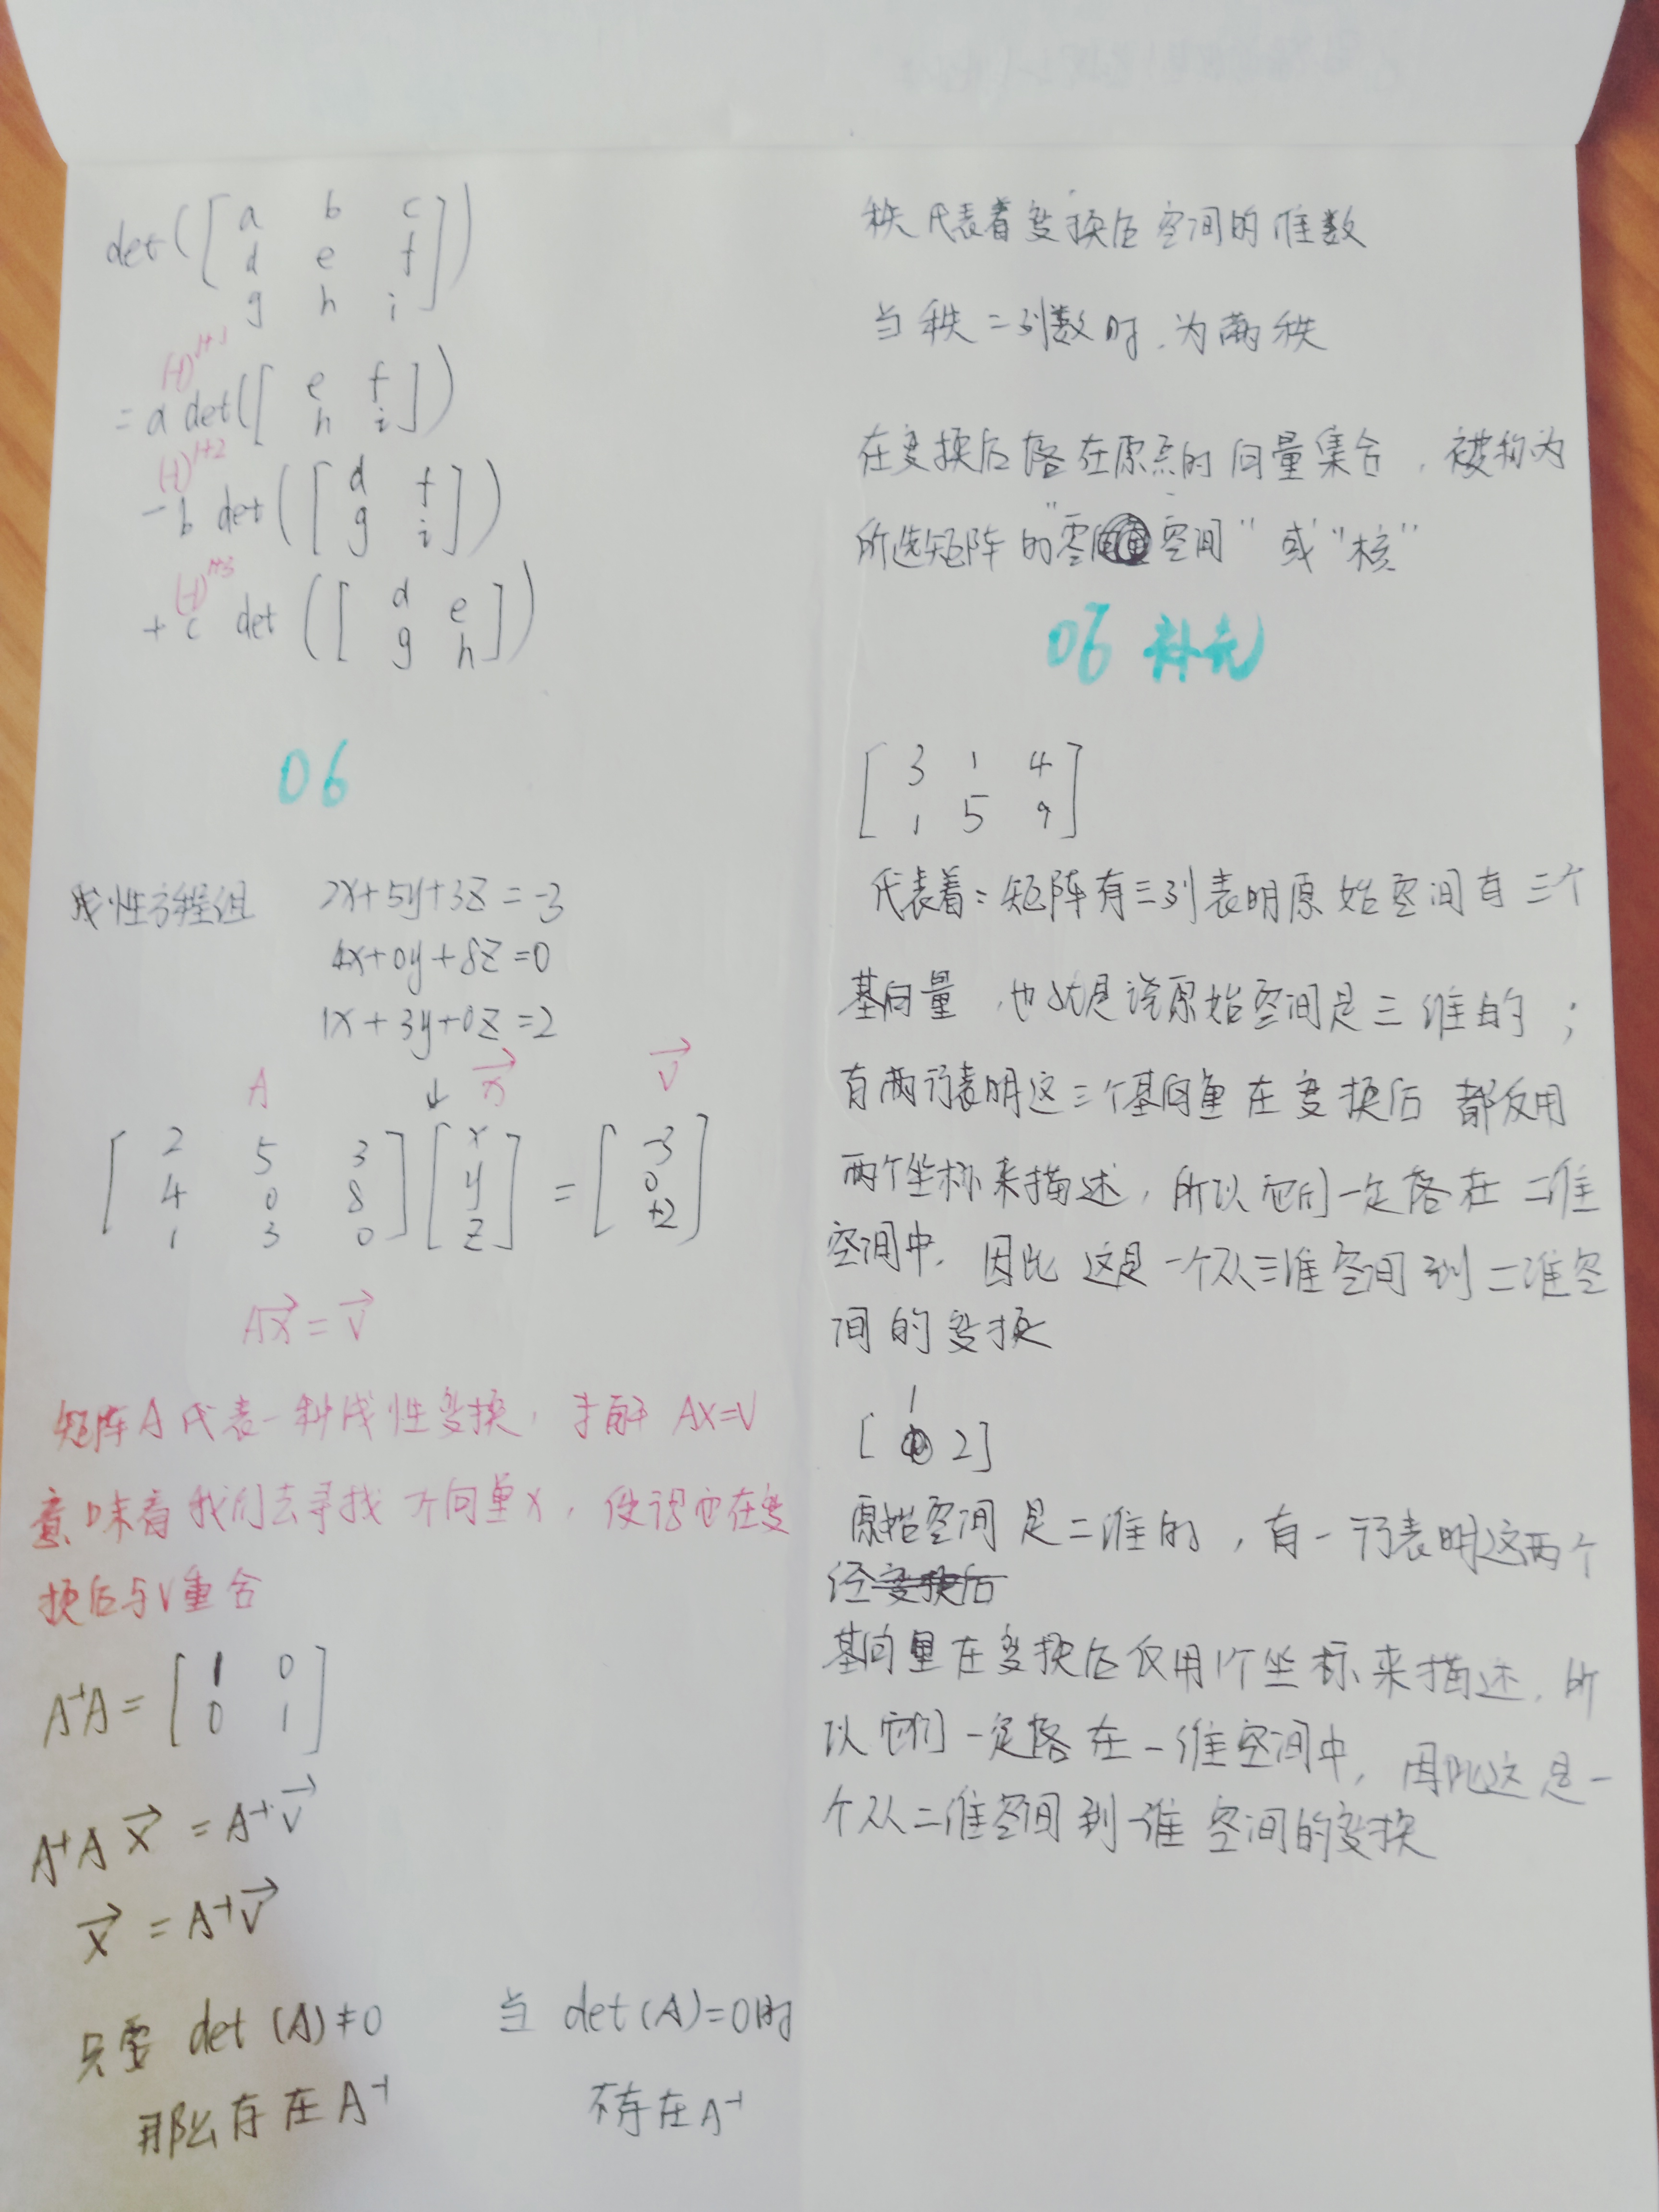 det([a b c
d e f
g h i])
(-1)^{1+1}
= a det([e f
h i])
(-1)^{1+2}
- b det([d f
g i])
(-1)^{1+3}
+ c det([d e
g h])
06
线性方程组 2x+5y+3z=-3
4x+0y+8z=0
1x+3y+0z=2
A ↓ x⃗ v⃗
[2 5 3] [x] = [-3]
[4 0 8] [y] [0]
[1 3 0] [z] [+2]
Ax⃗=v⃗
矩阵A代表一种线性变换，求解 Ax=v
意味着我们去寻找一个向量x，使得它在变
换后与v重合
A⁻¹A = [1 0
0 1]
A⁻¹A x⃗ = A⁻¹ v⃗
x⃗ = A⁻¹ v⃗
只要 det(A)≠0
那么存在A⁻¹
当 det(A)=0时
不存在A⁻¹
秩代表着变换后空间的维数
当秩=列数时.为满秩
在变换后落在原点的向量集合，被称为
所选矩阵的"零空间"或"核"
06 补充
[3 1 4
1 5 9]
代表着：矩阵有三列表明原始空间有三个
基向量，也就是说原始空间是三维的；
有两行表明这三个基向量在变换后都仅用
两个坐标来描述，所以它们一定落在二维
空间中.因此这是一个从三维空间到二维空
间的变换
[1 2]
原始空间是二维的，有一行表明这两个
经变换后
基向量在变换后仅用1个坐标来描述.所
以它们一定落在一维空间中，因此这是一
个从二维空间到一维空间的变换